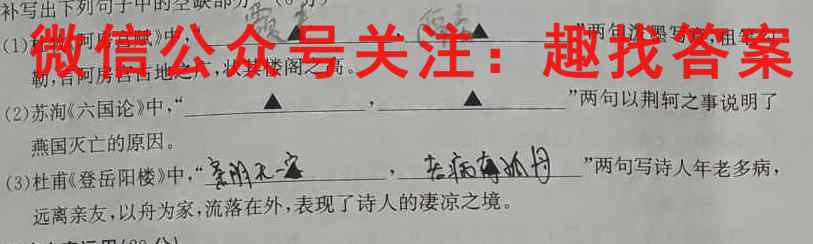 补写出下列句子中的空缺部分
(1)杜牧《阿房宫赋》中,“▲,▲”两句泼墨写意,粗笔勾
微信公众号关注：趣找答案
勒,言阿房宫占地之广,状其楼阁之高。
(2)苏洵《六国论》中,“▲,▲”两句以荆轲之事说明了
燕国灭亡的原因。
(3)杜甫《登岳阳楼》中,“亲朋无一字,老病有孤舟”两句写诗人年老多病,
远离亲友,以舟为家,流落在外,表现了诗人的凄凉之境。